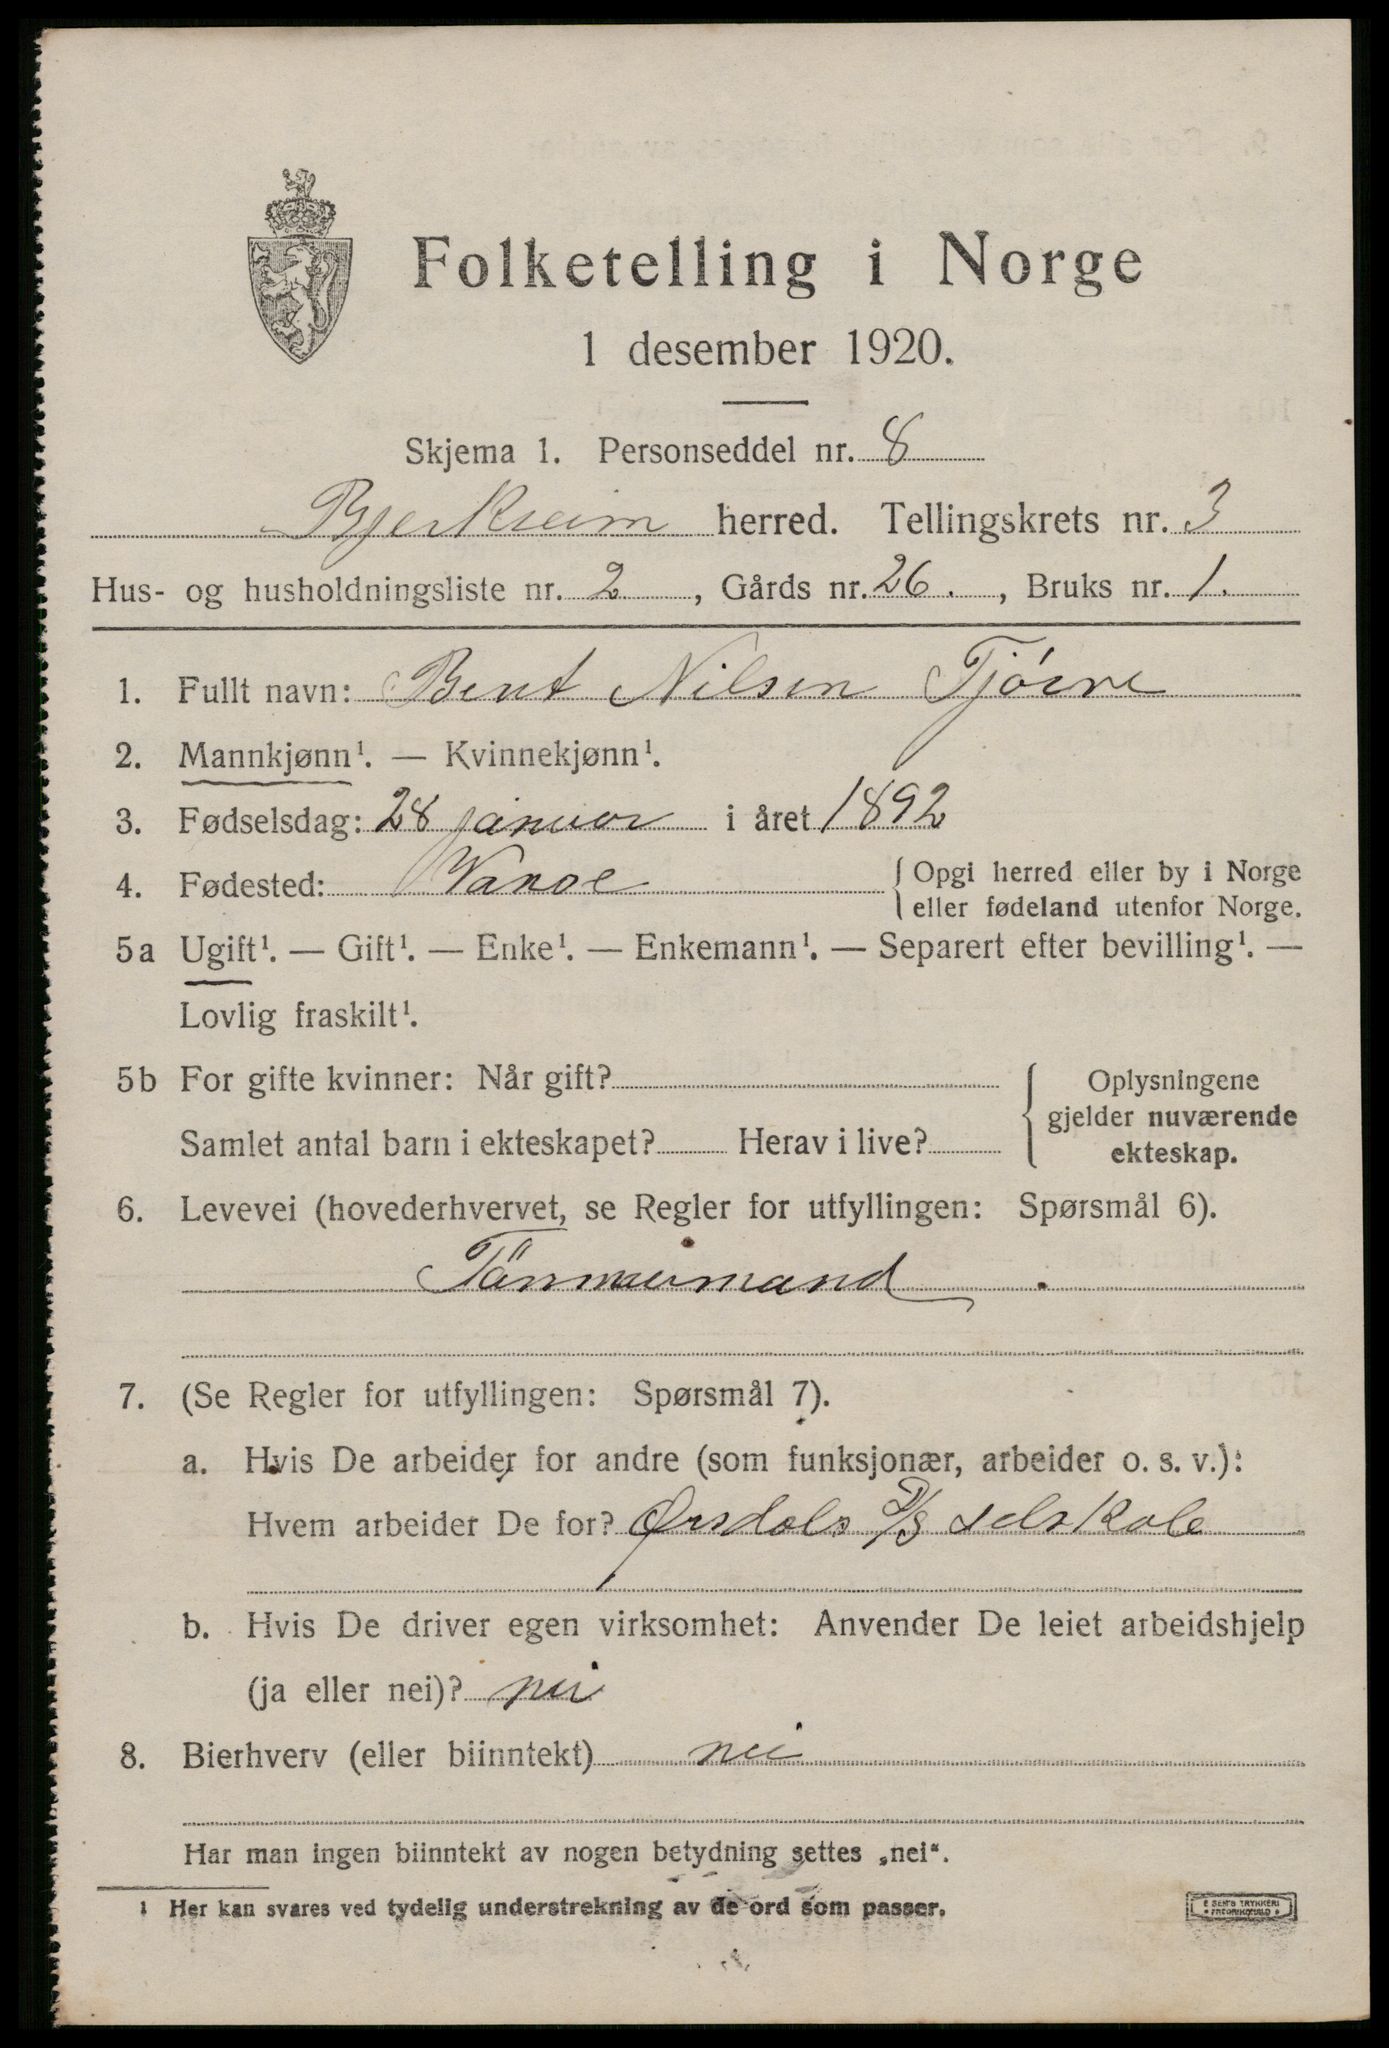 Folketelling i Norge
1 desember 1920.
Skjema 1. Personseddel nr. 8
Bjerkreim herred. Tellingskrets nr. 3
Hus- og husholdningsliste nr. 2, Gårds nr. 26., Bruks nr. 1.
1. Fullt navn: Bent Nilsen Tjörve
2. Mannkjønn¹. — Kvinnekjønn¹.
3. Fødselsdag: 28 januar i året 1892
4. Fødested: Vanse { Opgi herred eller by i Norge
eller fødeland utenfor Norge.
5a Ugift¹. — Gift¹. — Enke¹. — Enkemann¹. — Separert efter bevilling¹. —
Lovlig fraskilt¹.
5b For gifte kvinner: Når gift? { Oplysningene
gjelder nuværende
Samlet antal barn i ekteskapet? Herav i live? ekteskap.
6. Levevei (hovederhvervet, se Regler for utfyllingen: Spørsmål 6).
Tömmermand
7. (Se Regler for utfyllingen: Spørsmål 7).
a. Hvis De arbeider for andre (som funksjonær, arbeider o. s. v.):
Hvem arbeider De for? Ørsdals
b. Hvis De driver egen virksomhet: Anvender De leiet arbeidshjelp
(ja eller nei)? nei
8. Bierhverv (eller biinntekt) nei
Har man ingen biinntekt av nogen betydning settes „nei“.
1 Her kan svares ved tydelig understrekning av de ord som passer.